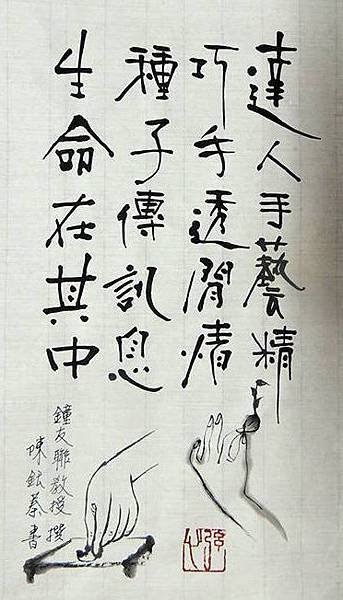 達人手藝精
巧手透閒情
種子傳訊息
生命在其中
鐘友聯教授撰
陳書